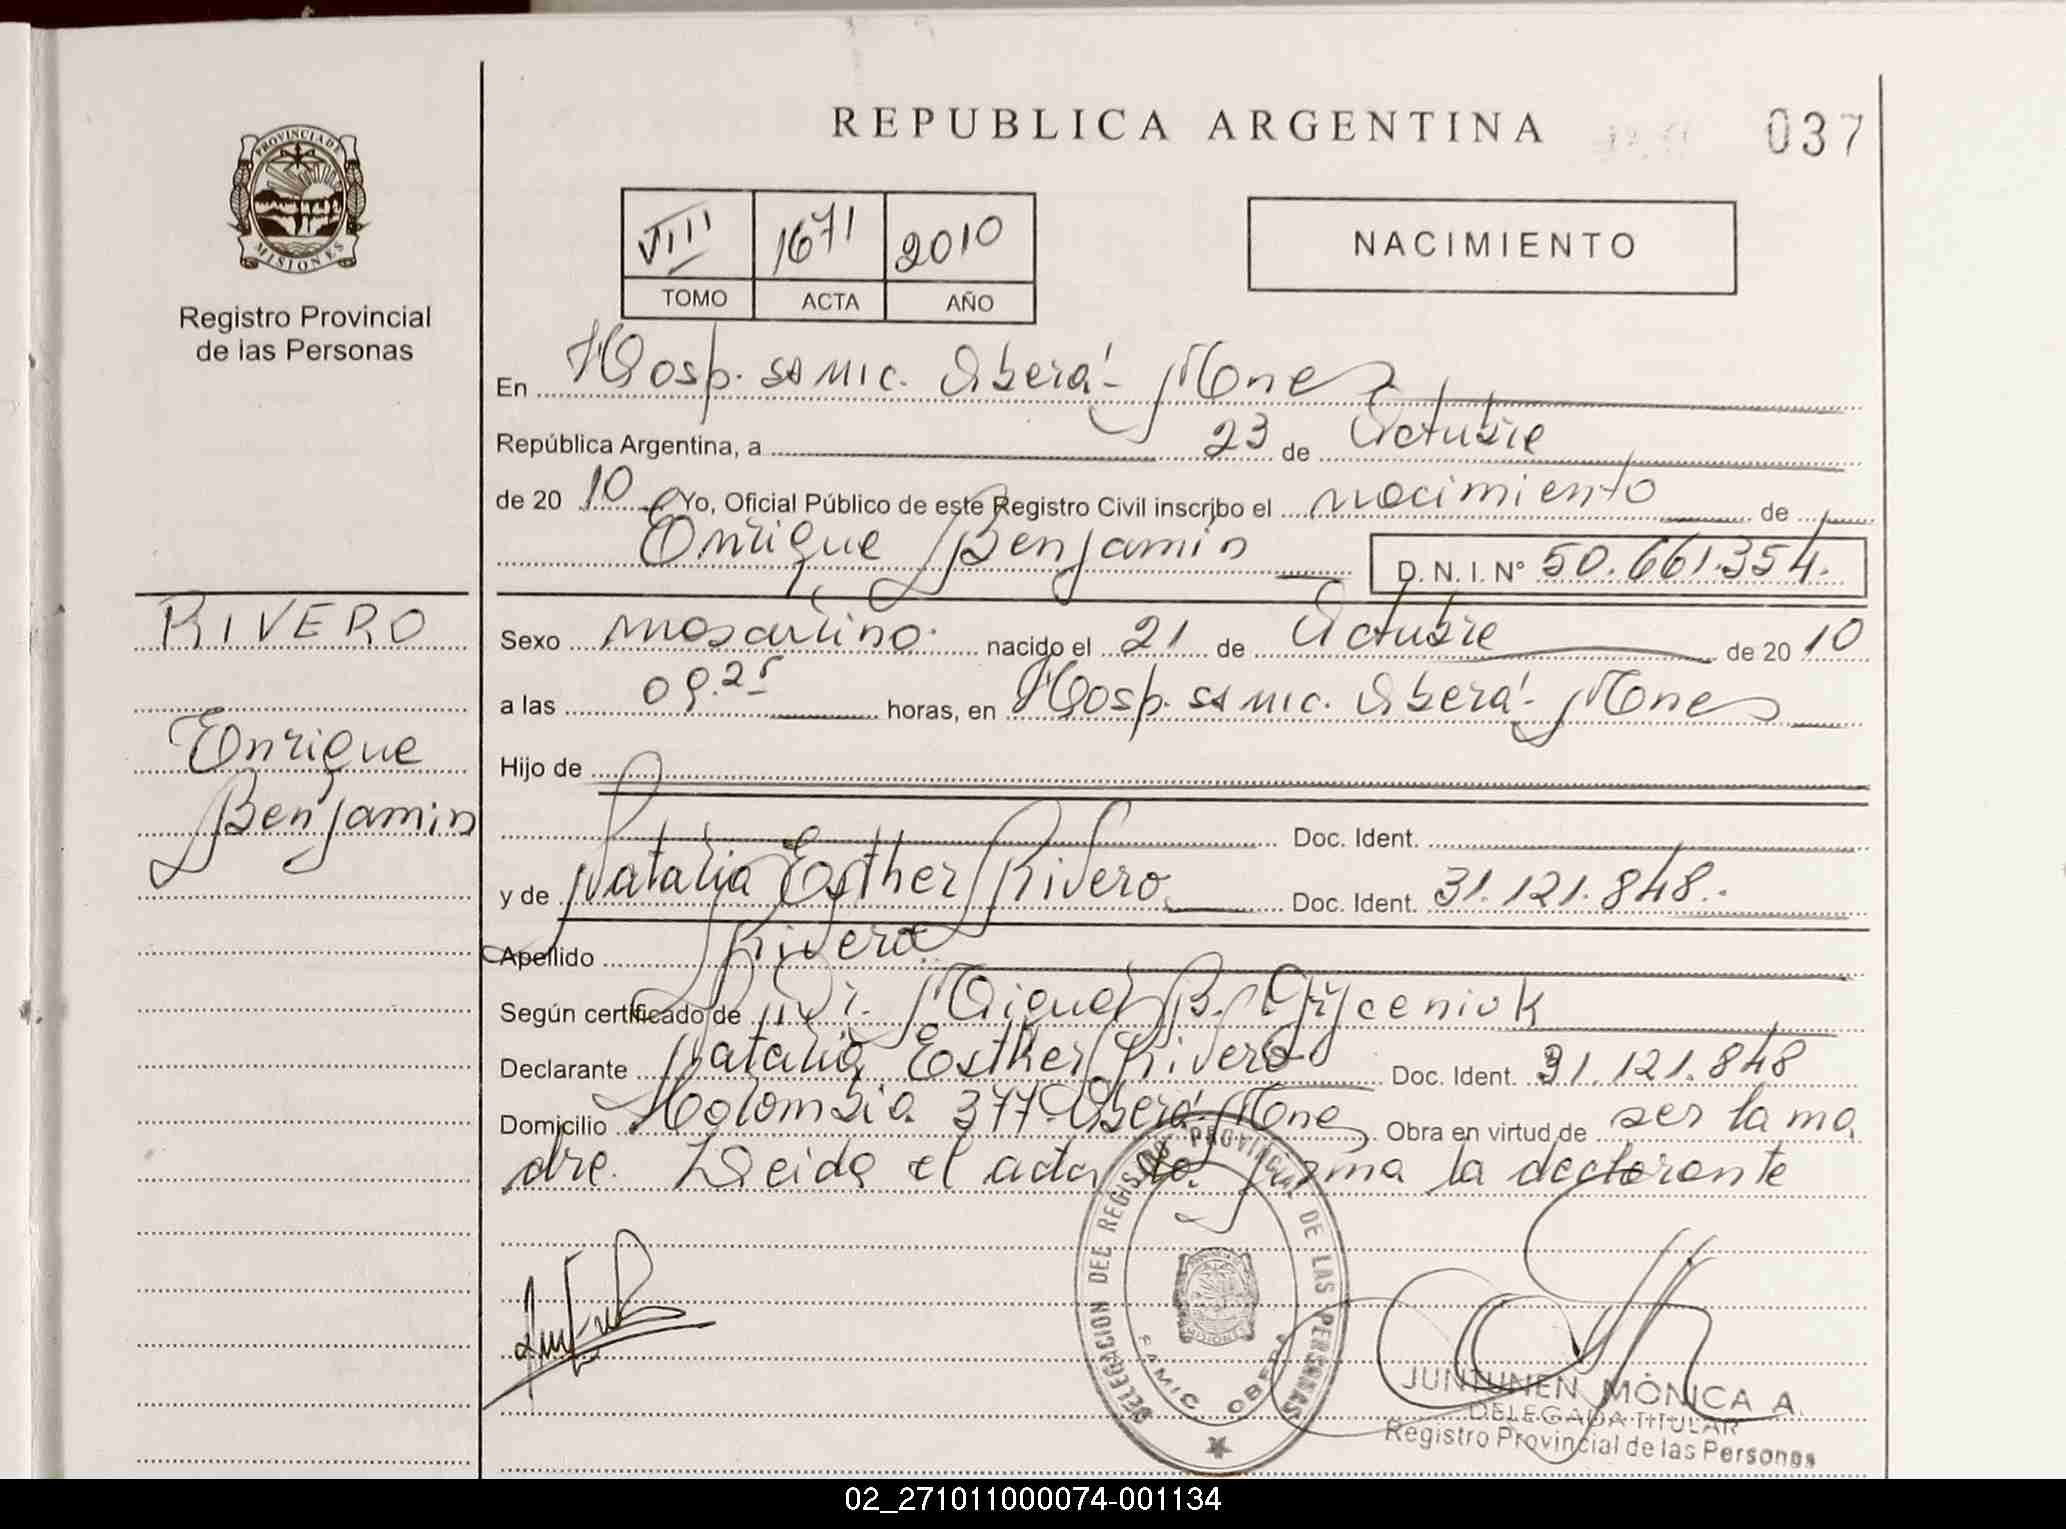 REPUBLICA ARGENTINA
037
PROVINCIA DE
MISIONES
Registro Provincial
de las Personas
VIII 1671 2010
TOMO ACTA AÑO
NACIMIENTO
En Hosp. samic. Oberá- Mones
República Argentina, a 23 de Octubre
de 20 10 Yo, Oficial Público de este Registro Civil inscribo el nacimiento de
Enrique Benjamin D. N. I. N° 50.661.354.
RIVERO
Sexo masculino. nacido el 21 de Octubre de 20 10
a las 09.25 horas, en Hosp. samic. Oberá- Mones
Enrique
Benjamin
Hijo de
Doc. Ident.
y de Natalia Esther Rivero Doc. Ident. 31.121.848.
Apellido Rivero
Según certificado de Dr. Miguel B.
Declarante Natalia Esther Rivero Doc. Ident. 31.121.848
Domicilio 377 Oberá- Mones Obra en virtud de ser la ma
dre. Leida el acta la firma la declarante
DELEGACION DEL REGISTRO PROVINCIAL DE LAS PERSONAS
SAMIC OBERA
JUNTUNEN MÓNICA A.
DELEGADA TITULAR
Registro Provincial de las Personas
02_271011000074-001134